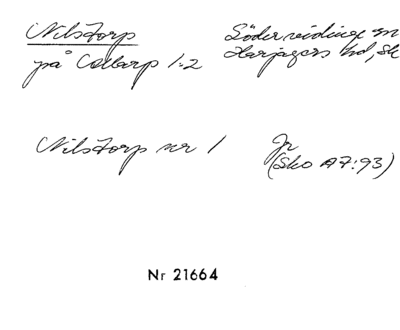 Nilstorp
på Collarp 1:2
Södervidinge sn
Harjagers hd, Sk
Nilstorp nr 1
Jr
(Sko A7:93)
Nr 21664